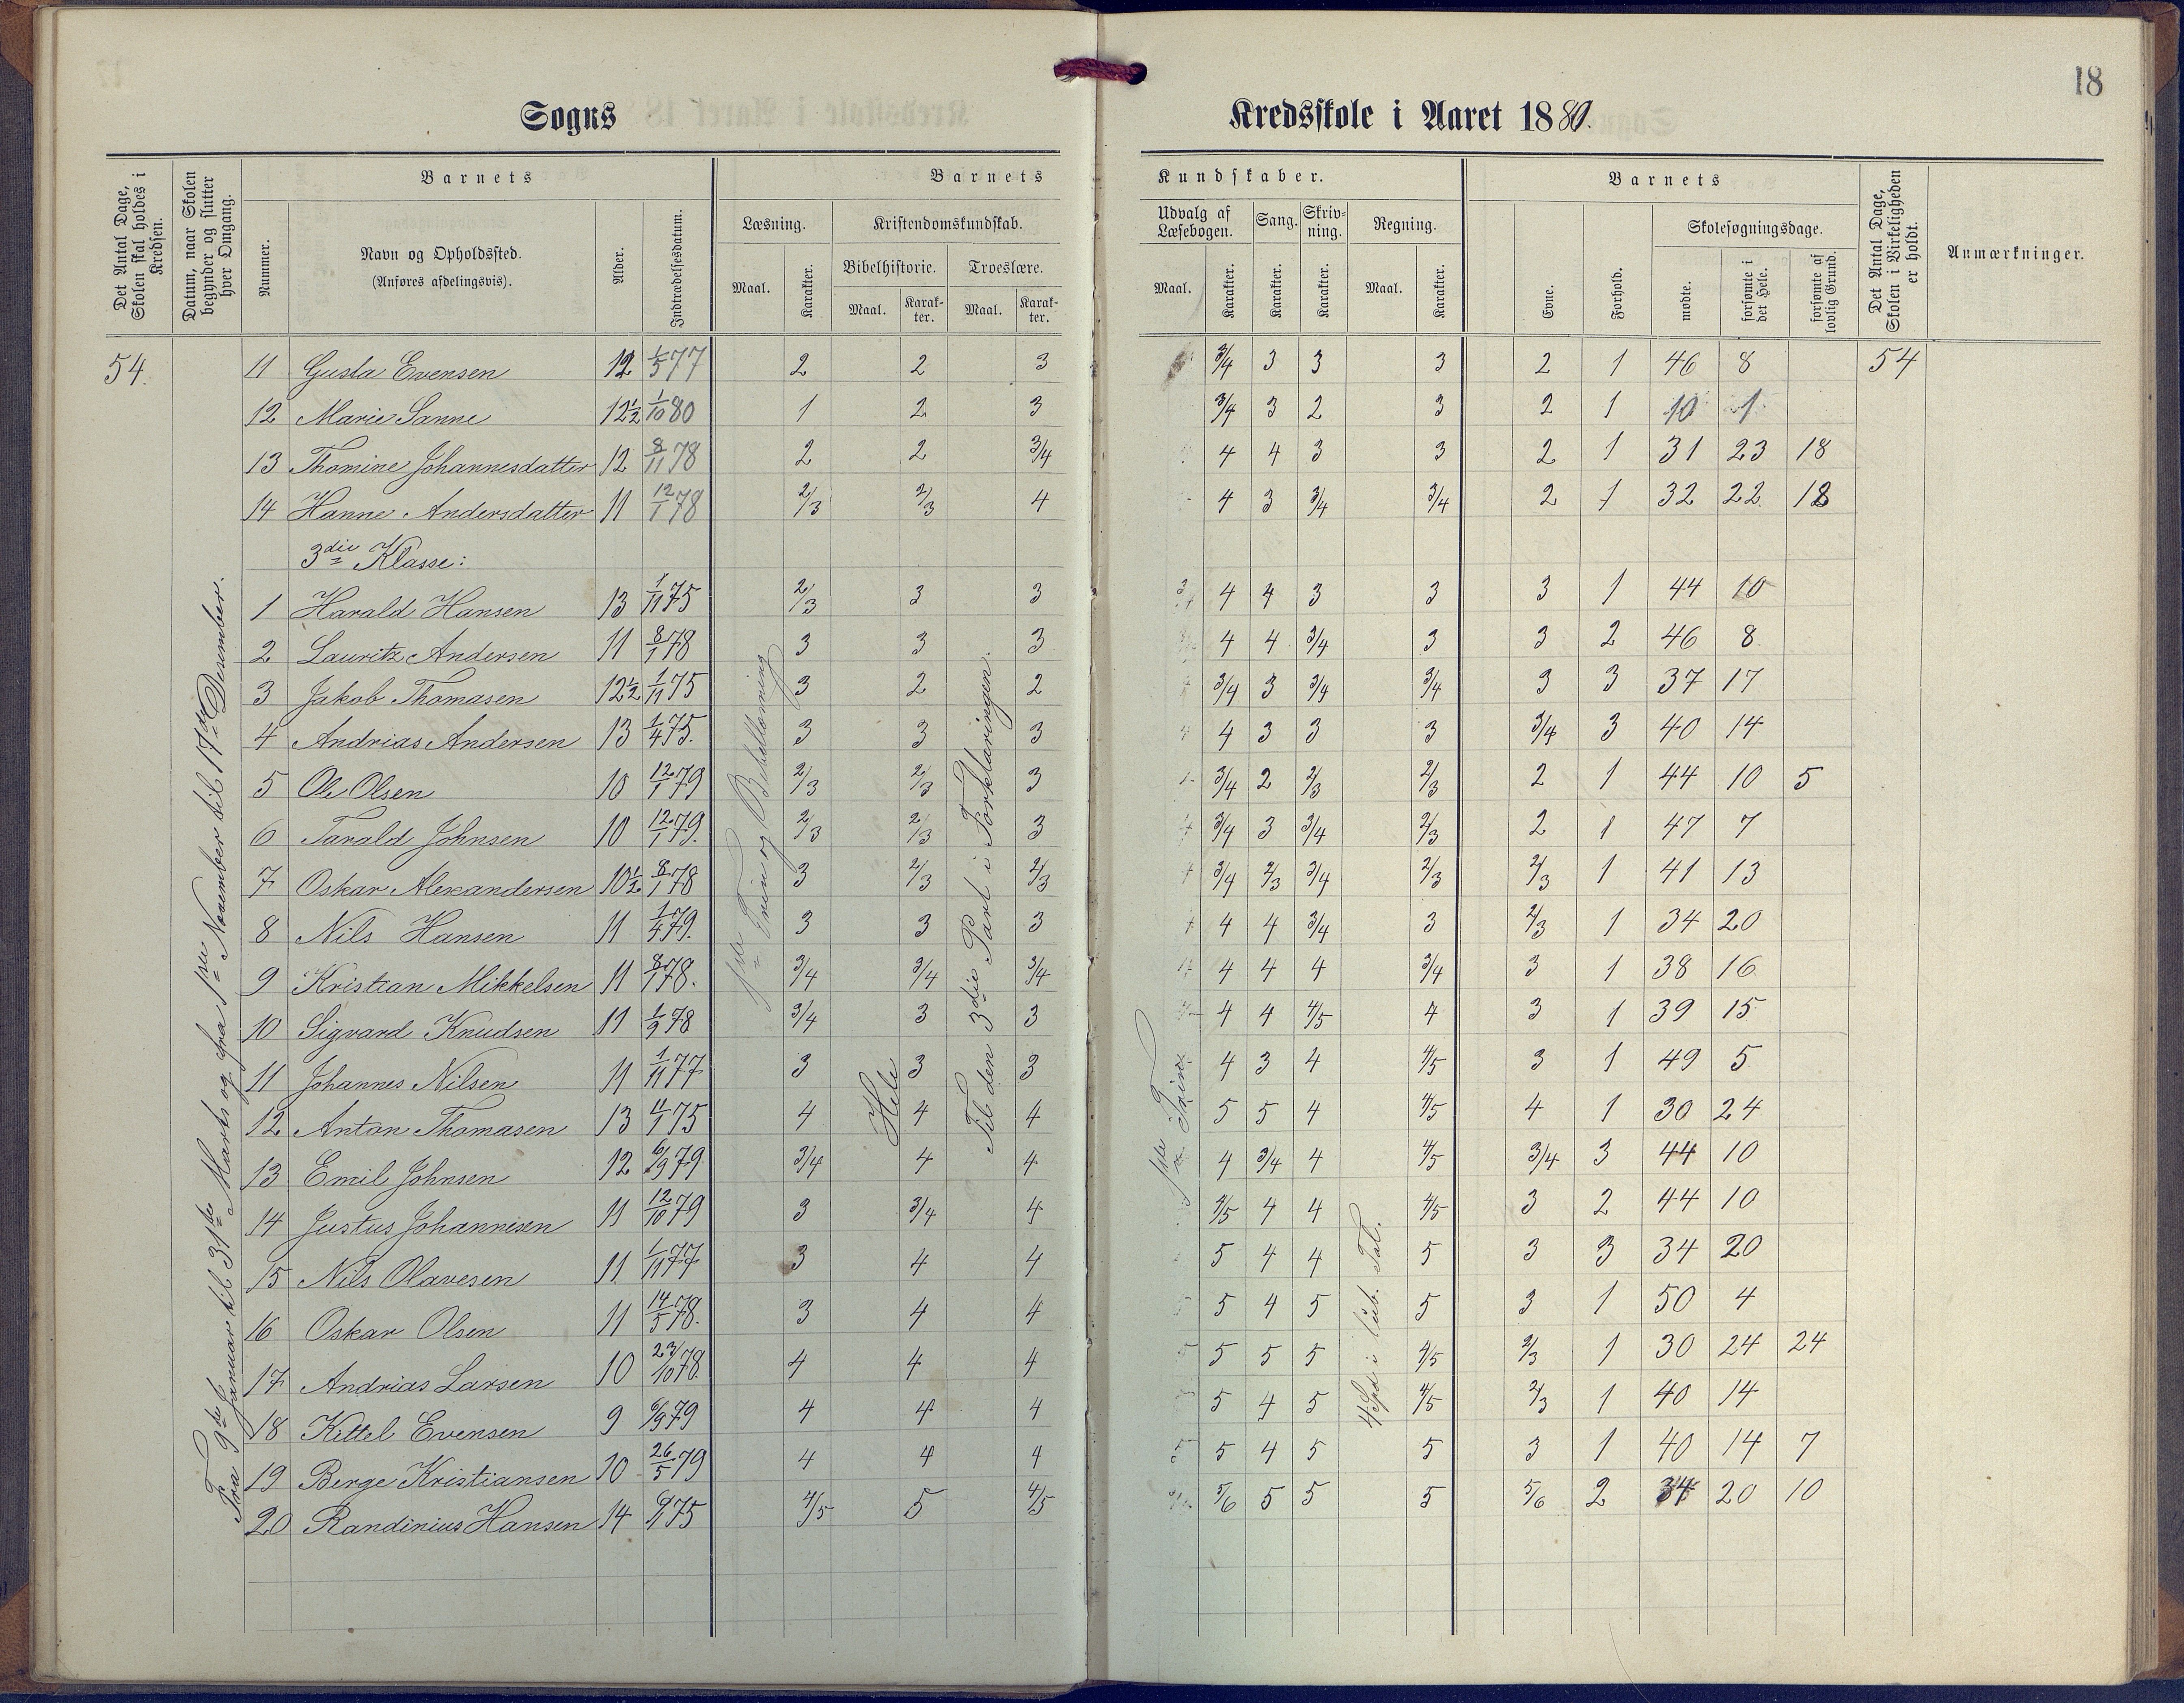 18
Sogns
Kredsskole i Aaret 1880.
Det Antal Dage, Skolen skal holdes i Kredsen.
Datum, naar Skolen begynder og slutter hver Omgang.
Barnets
Nummer.
Navn og Opholdssted.
(Anføres afdelingsvis).
Alder.
Indtrædelsesdatum.
Barnets
Læsning.
Maal.
Karakter.
Kristendomskundskab.
Bibelhistorie.
Maal.
Karakter.
Troeslære.
Maal.
Karakter.
Kundskaber.
Udvalg af Læsebogen.
Maal.
Karakter.
Sang.
Karakter.
Skrivning.
Karakter.
Regning.
Maal.
Karakter.
Barnets
Evne.
Forhold.
Skolesøgningsdage.
mødte.
forsømte i det Hele.
forsømte af lovlig Grund.
Det Antal Dage, Skolen i Virkeligheden er holdt.
Anmærkninger.
54. 11 Gusta Evensen 12 1/5 77 2 2 3 3/4 3 3 3 2 1 46 8 54
12 Marie Sanne 12½ 1/10 80 1 2 3 3/4 3 2 3 2 1 10 1
13 Thomine Johannesdatter 12 8/11 78 2 2 3/4 4 4 3 3 2 1 31 23 18
14 Hanne Andersdatter 11 12/1 78 2/3 2/3 4 4 3 3/4 3/4 2 1 32 22 18
3die Klasse:
1 Harald Hansen 13 1/11 75 2/3 3 3 4 4 3 3 3 1 44 10
2 Lauritz Andersen 11 8/1 78 3 3 3 4 4 3/4 3 3 2 46 8
3 Jakob Thomasen 12½ 1/11 75 3 2 2 3/4 3 3/4 3/4 3 3 37 17
4 Andrias Andersen 13 1/4 75. 3 3 3 4 3 3 3 3/4 3 40 14
5 Ole Olsen 10 12/1 79 2/3 2/3 3 3/4 2 2/3 2/3 2 1 44 10 5
6 Tarald Johnsen 10 12/1 79. 2/3 2/3 3 3/4 3 3/4 2/3 2 1 47 7
7 Oskar Alexandersen 10½ 8/1 78 3 2/3 2/3 3/4 2/3 3/4 2/3 2/3 1 41 13
8 Nils Hansen 11 1/4 79. 3 3 3 4 4 3/4 3 2/3 1 34 20
9 Kristian Mikkelsen 11 8/1 78. 3/4 3/4 3/4 4 4 4 3/4 3 1 38 16
10 Sigvard Knudsen 11 1/9 78 3/4 3 3 4 4 4/5 4 3 1 39 15
11 Johannes Nilsen 11 1/11 77 3 3 3 4 3 4 4/5 3 1 49 5
12 Anton Thomasen 13 11/1 75 4 4 4 5 5 4 4/5 4 1 30 24
13 Emil Johnsen 12 6/9 79 3/4 4 4 4 3/4 4 4/5 3/4 3 44 10
14 Justus Johannisen 11 12/10 79 3 3/4 4 4/5 4 4 4/5 3 2 44 10
15 Nils Olavesen 11 1/11 77 3 4 4 5 4 4 5 3 3 34 20
16 Oskar Olsen 11 14/5 78. 3 4 4 5 4 5 5 3 1 50 4
17 Andrias Larsen 10 23/10 78. 4 4 4 5 5 5 4/5 2/3 1 30 24 24
18 Kittel Evensen 9 6/9 79 4 4 4 5 4 5 4/5 2/3 1 40 14
19 Berge Kristiansen 10 26/5 79 4 4 4 5 4 5 5 3 1 40 14 7
20 Randinius Hansen 14 6/1 75 4/5 5 4/5 5/6 5 5 5 5/6 2 34 20 10
Fra 9de Januar til 31te Marts og fra 1ste November til 17de Desember.
1ste Trin og
Hele
Til den 3die Part i Forklaringen.
1ste Trin
4 Spd i Tal.